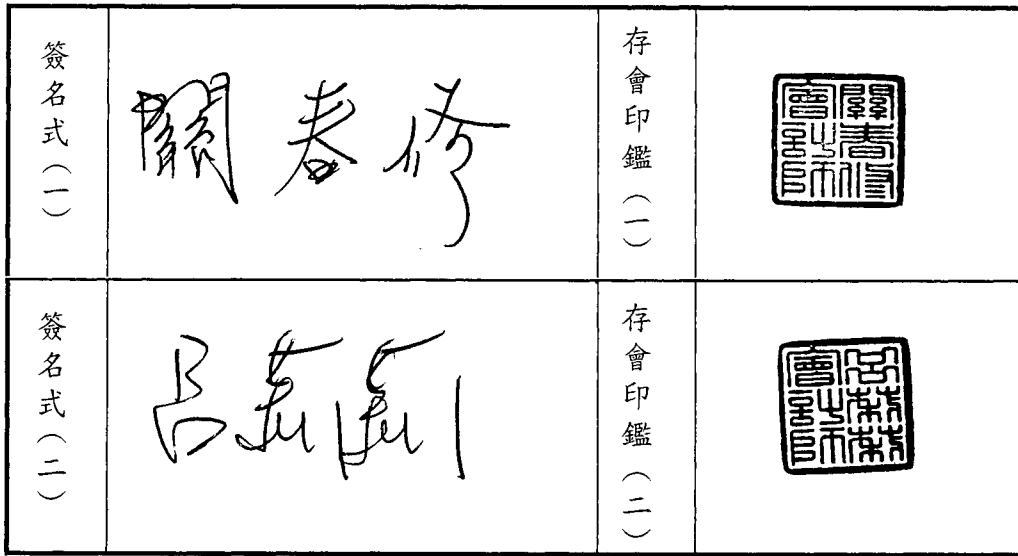 簽名式（一）
關春修
存會印鑑（一）
關春修會計師
簽名式（二）
呂莉莉
存會印鑑（二）
呂莉莉會計師